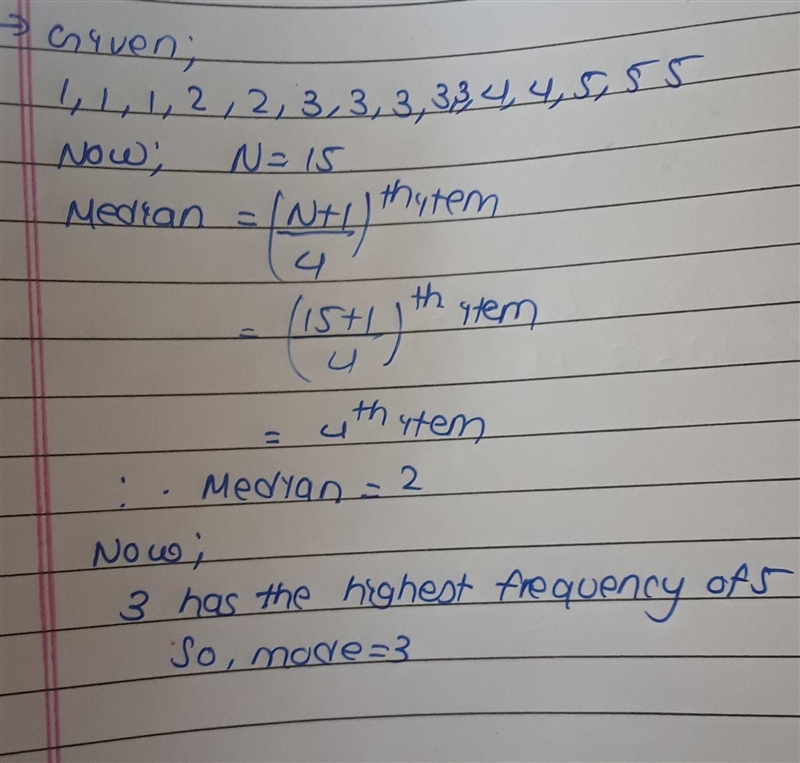 → Given;
1, 1, 1, 2, 2, 3, 3, 3, 3, 3, 4, 4, 5, 5 5
Now; N = 15
Median = (N+1/4)^th ytem
= (15+1/4)^th ytem
= 4^th ytem
∴ Medyan = 2
Now;
3 has the highest frequency of 5
So, mode = 3